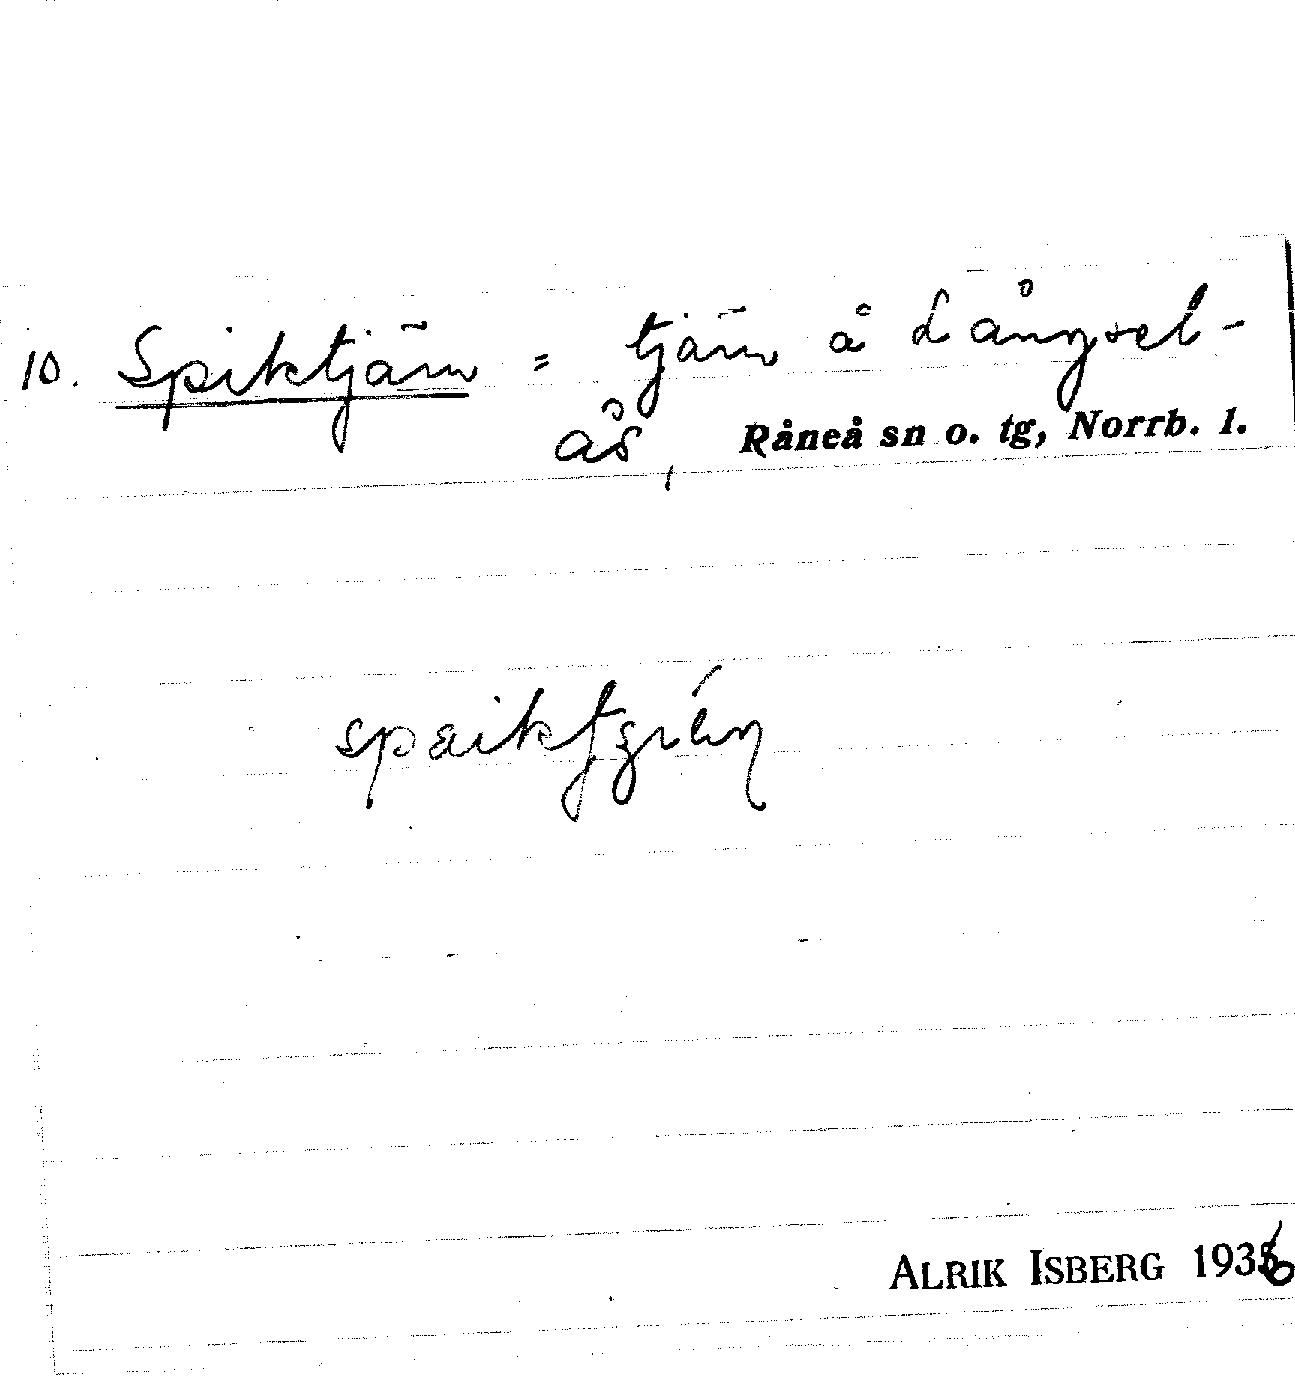 10. Spiktjärn = tjärn å Långsel-
ås, Råneå sn o. tg, Norrb. l.
ALRIK ISBERG 1936